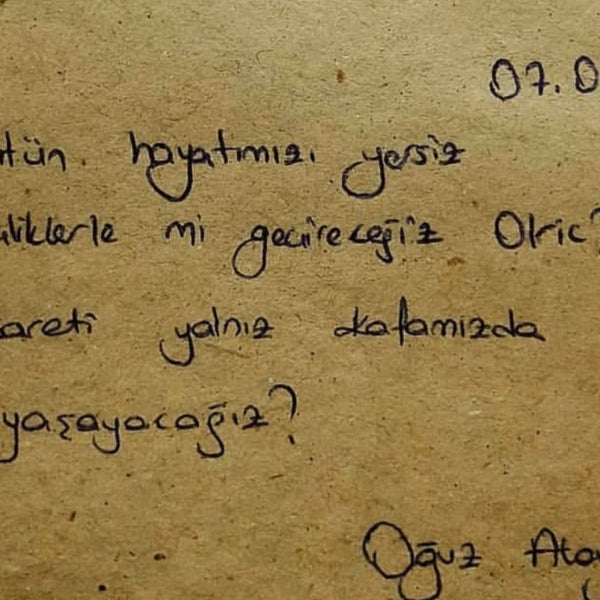 07.0
tün. hayatımızı yersiz
liklerle mi geçireceğiz Olric?
areti yalnız kafamızda
yaşayacağız?
Oğuz Ata